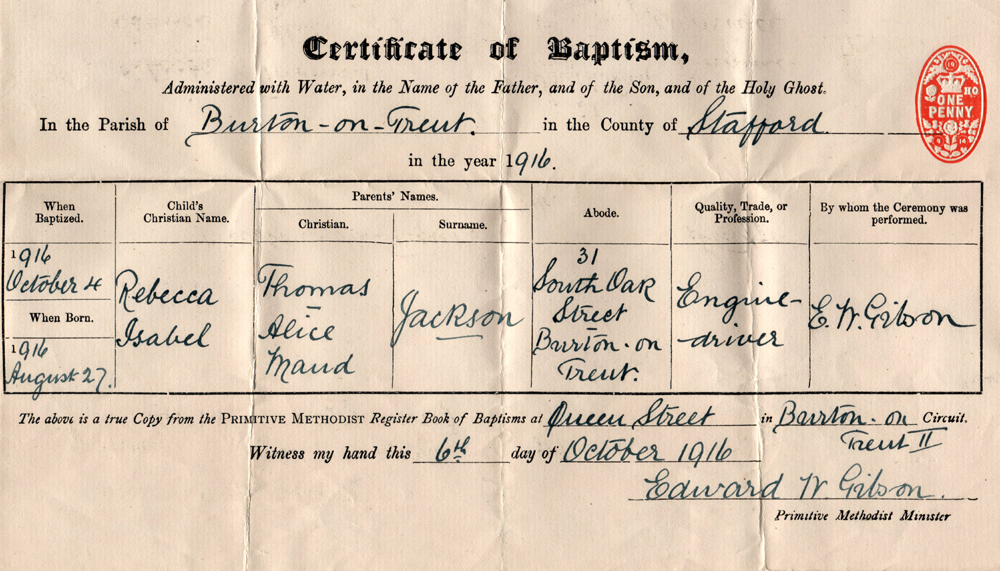 Certificate of Baptism,
Administered with Water, in the Name of the Father, and of the Son, and of the Holy Ghost.
In the Parish of Burton-on-Trent. in the County of Stafford
in the year 1916.
ONE
PENNY
When Baptized.
Child's Christian Name.
Parents' Names.
Christian.
Surname.
Abode.
Quality, Trade, or Profession.
By whom the Ceremony was performed.
1916
October 4
When Born.
1916
August 27.
Rebecca
Isabel
Thomas
–
Alice
Maud
Jackson
31
South Oak
Street
Burton-on
Trent.
Engine-
driver
E. W. Gibson
The above is a true Copy from the PRIMITIVE METHODIST Register Book of Baptisms at Queen Street in Burton-on Circuit.
Trent II
Witness my hand this 6th day of October 1916
Edward W Gibson.
Primitive Methodist Minister